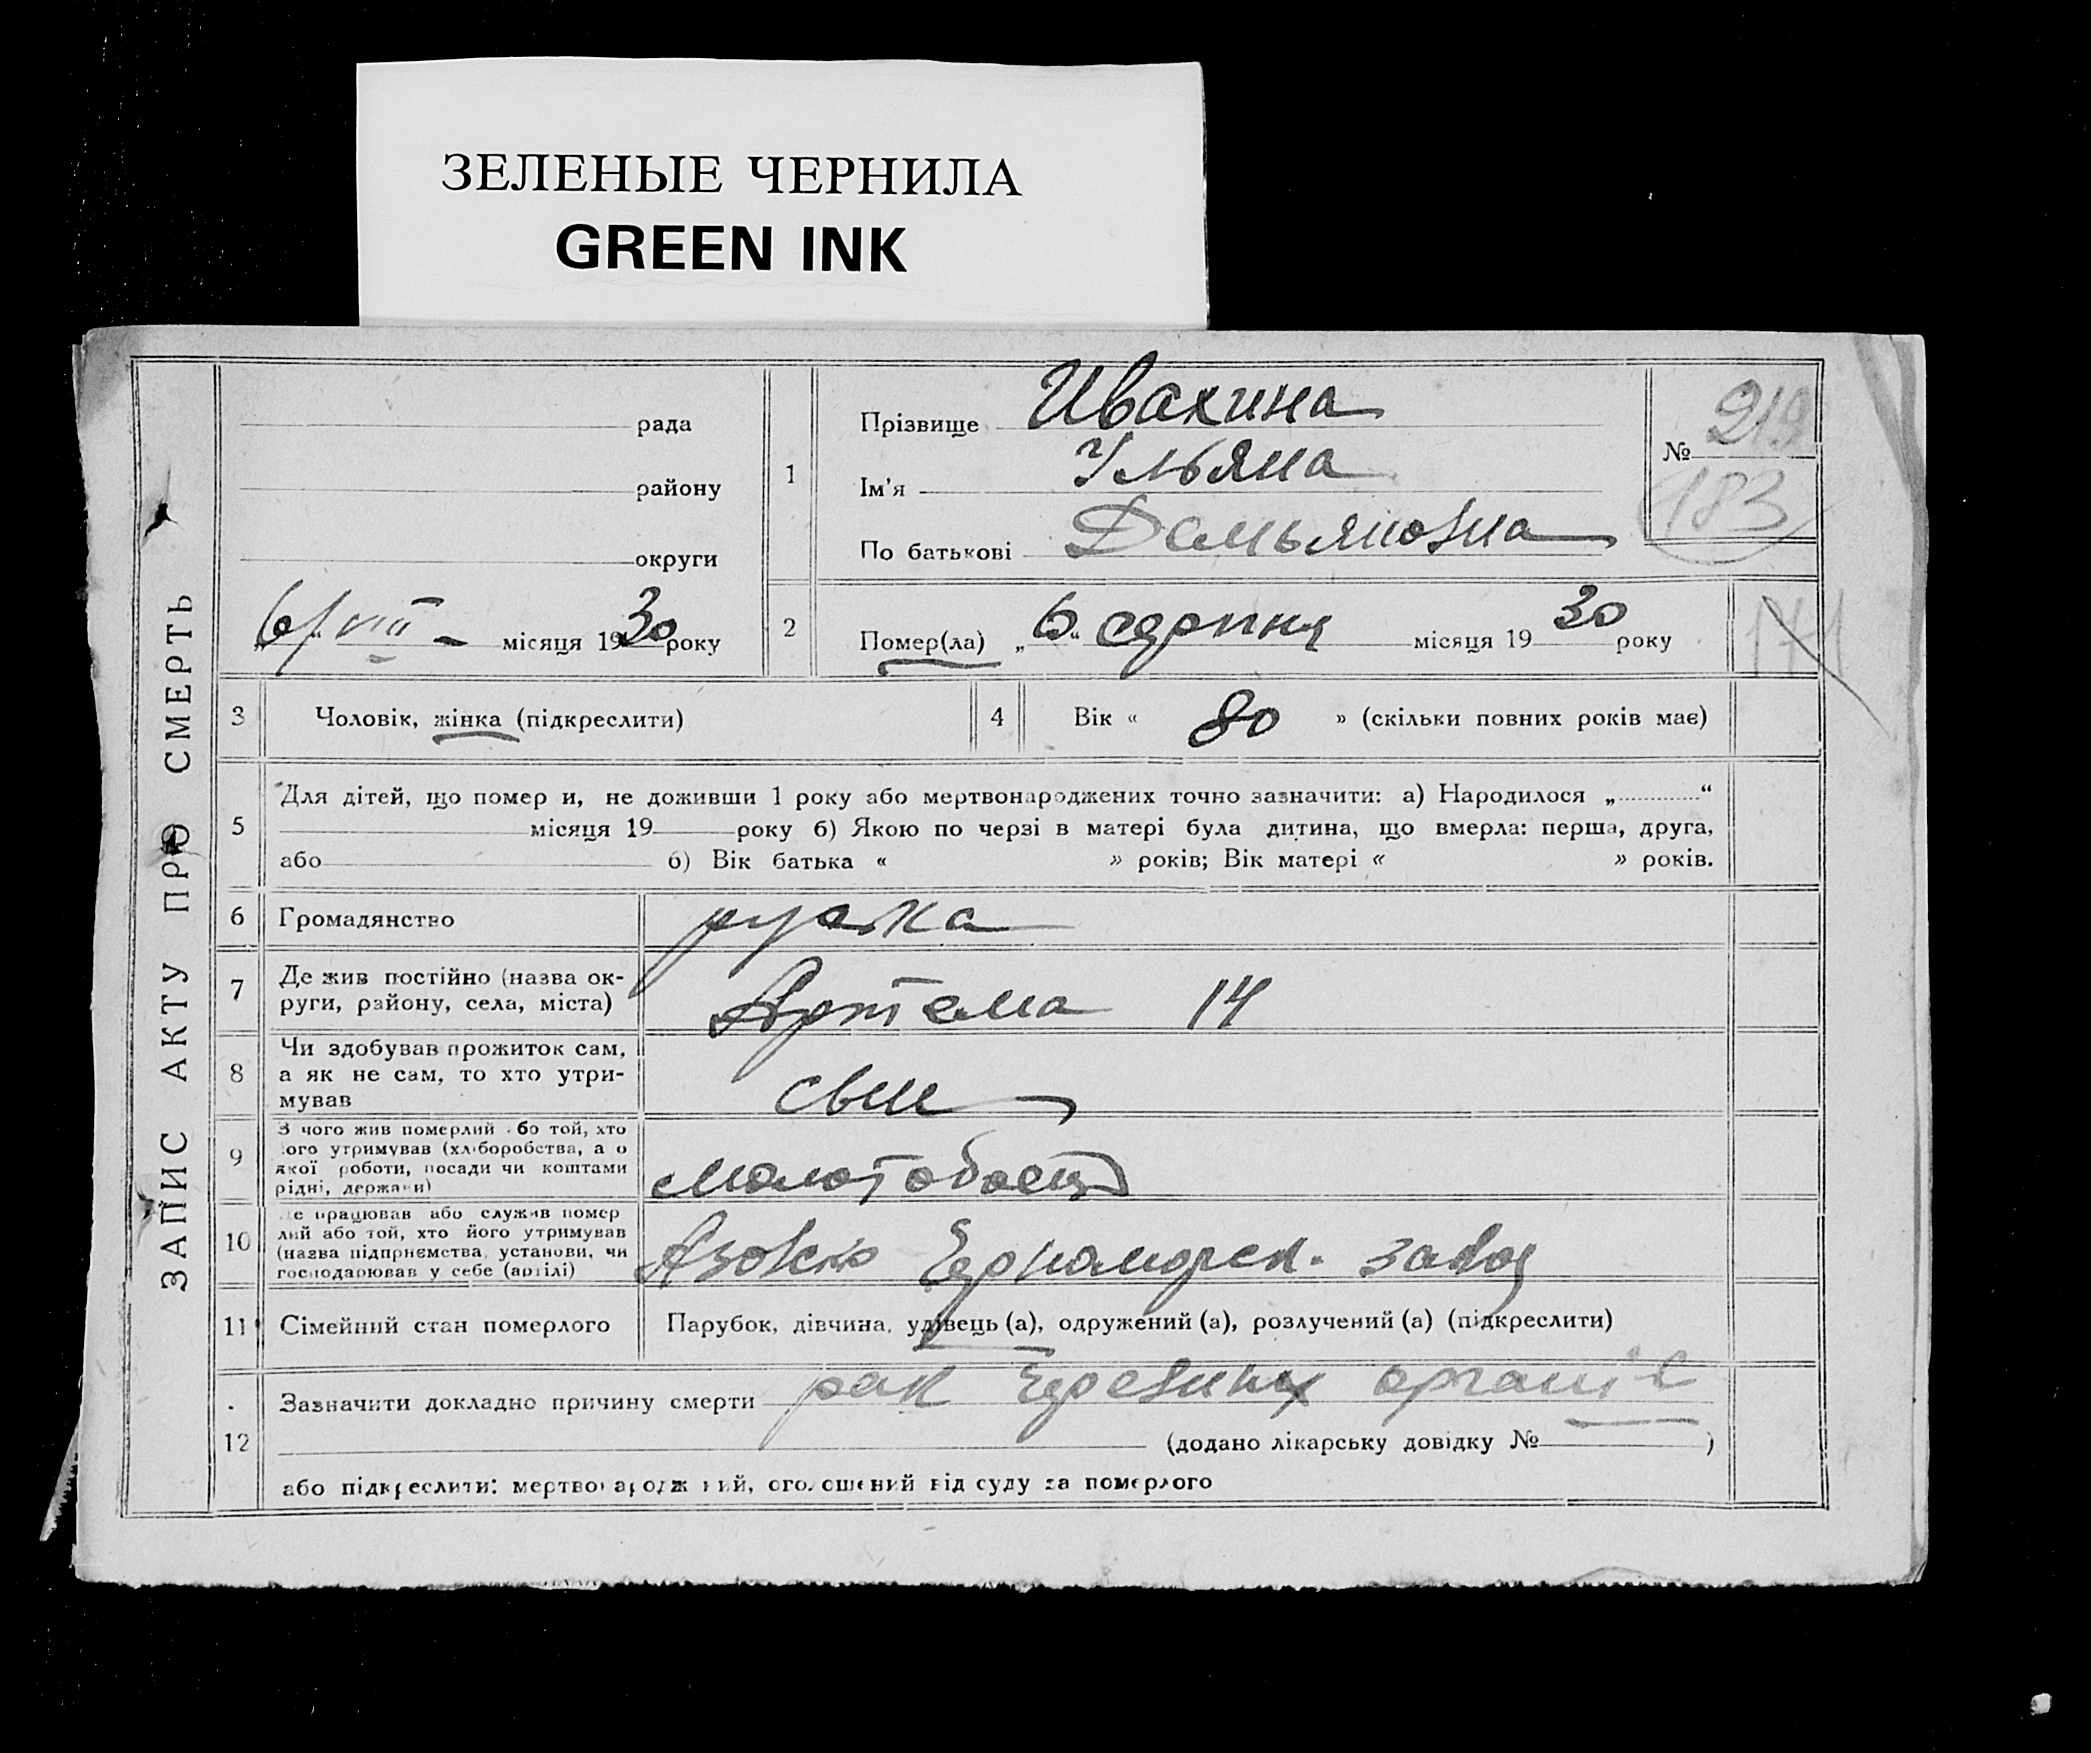 ЗЕЛЕНЫЕ ЧЕРНИЛА
GREEN INK
ЗАПИС АКТУ ПРО СМЕРТЬ
рада
району
округи
6/VIII - місяця 1930 року
1
Прізвище Ивахина
Ім'я Ульяна
По батькові Демьяновна
№ 219
183
2
Помер(ла) „6“ серпня місяця 1930 року
171
3 Чоловік, жінка (підкреслити)
4 Вік « 80 » (скільки повних років має)
5
Для дітей, що помер и, не доживши 1 року або мертвонароджених точно зазначити: а) Народилося „ “
місяця 19 року б) Якою по черзі в матері була дитина, що вмерла: перша, друга,
або б) Вік батька « » років; Вік матері « » років.
6 Громадянство руска
7 Де жив постійно (назва ок-
руги, району, села, міста) Артема 14
8 Чи здобував прожиток сам,
а як не сам, то хто утри-
мував сын
9 З чого жив померлий або той, хто
його утримував (хліборобства, а о
якої роботи, посади чи коштами
рідні, держави) молотобоец
10 Де працював або служив помер
лий або той, хто його утримував
(назва підприємства, установи, чи
господарював у себе (артілі) Азовско Черноморск. завод
11 Сімейний стан померлого Парубок, дівчина, удівець (а), одружений (а), розлучений (а) (підкреслити)
12 Зазначити докладно причину смерти рак черевних органів
(додано лікарську довідку № )
або підкреслити: мертвонароджений, оголошений від суду за померлого